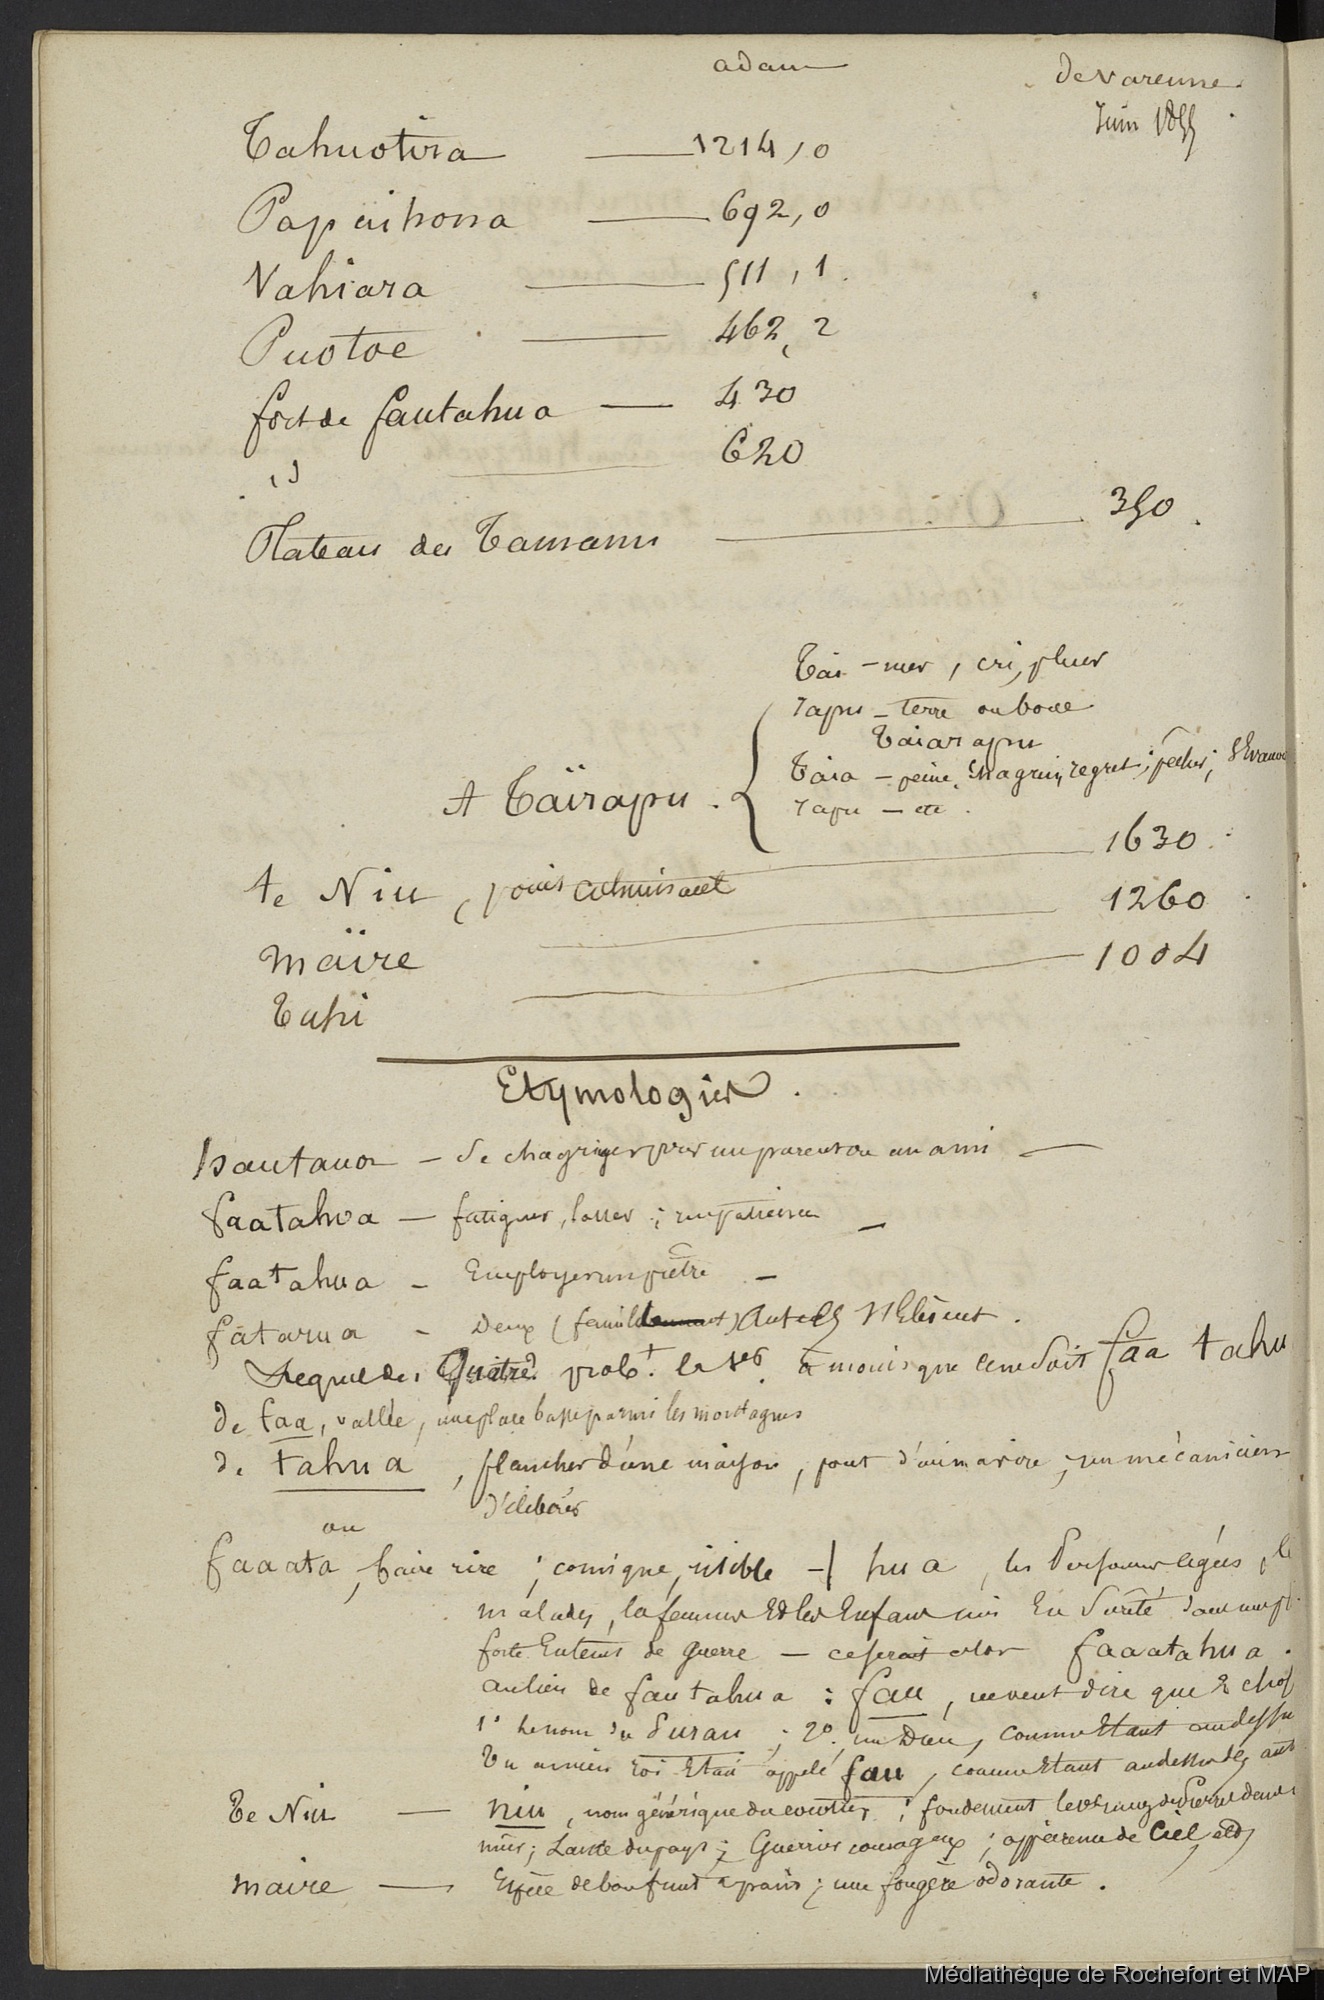 adam
de Varenne
Juin 1855
Tahuotira 1214,0
Papeihona 692,0
Vahiara 511,1
Puotoe 462,2
fort de fautahua — 430
620
Plateau des Tamanu 350
Tai — mer, cri, pleur
rapu — terre ou boue
Taiarapu
A Taïrapu
Taia — peine, chagrin, regret; pecher;
rapu — etc
te Niu, point culminant 1630
maïre 1260
Tuhi 1004
Etymologies
hautaua — Se chagriner pour un parent ou un ami —
faatahoa — fatiguer, lasser; impatience —
faatahua — Employer un prêtre —
fatarua — Deux
Lequel des Quatre? prob.t le 1er à moins que ce ne soit faa tahu
de faa, vallée, une place basse parmi les montagnes
de tahua, plancher d'une maison, pont d'un navire; un mécanicien
ou
faaata, faire rire; comique, risible — hua, les Personnes agées, le
malades, les femmes Et les Enfans mis En Sureté dans
forte En tems de guerre — ce serait alors faaatahua.
au lieu de fautahua : fau, ne veut dire que 2 chos
1° le nom du Purau; 2° un Dieu, comme Etant au dessu
Un ancien roi Etait appelé fau, comme Etant au dessus des aut
Te Niu — niu, nom générique du cocotier; fondement
mur; Lance du pays; Guerrier courageux; apparence de Ciel etc
maire — Espèce de bon fruit à pain; une fougère odorante.
Médiathèque de Rochefort et MAP